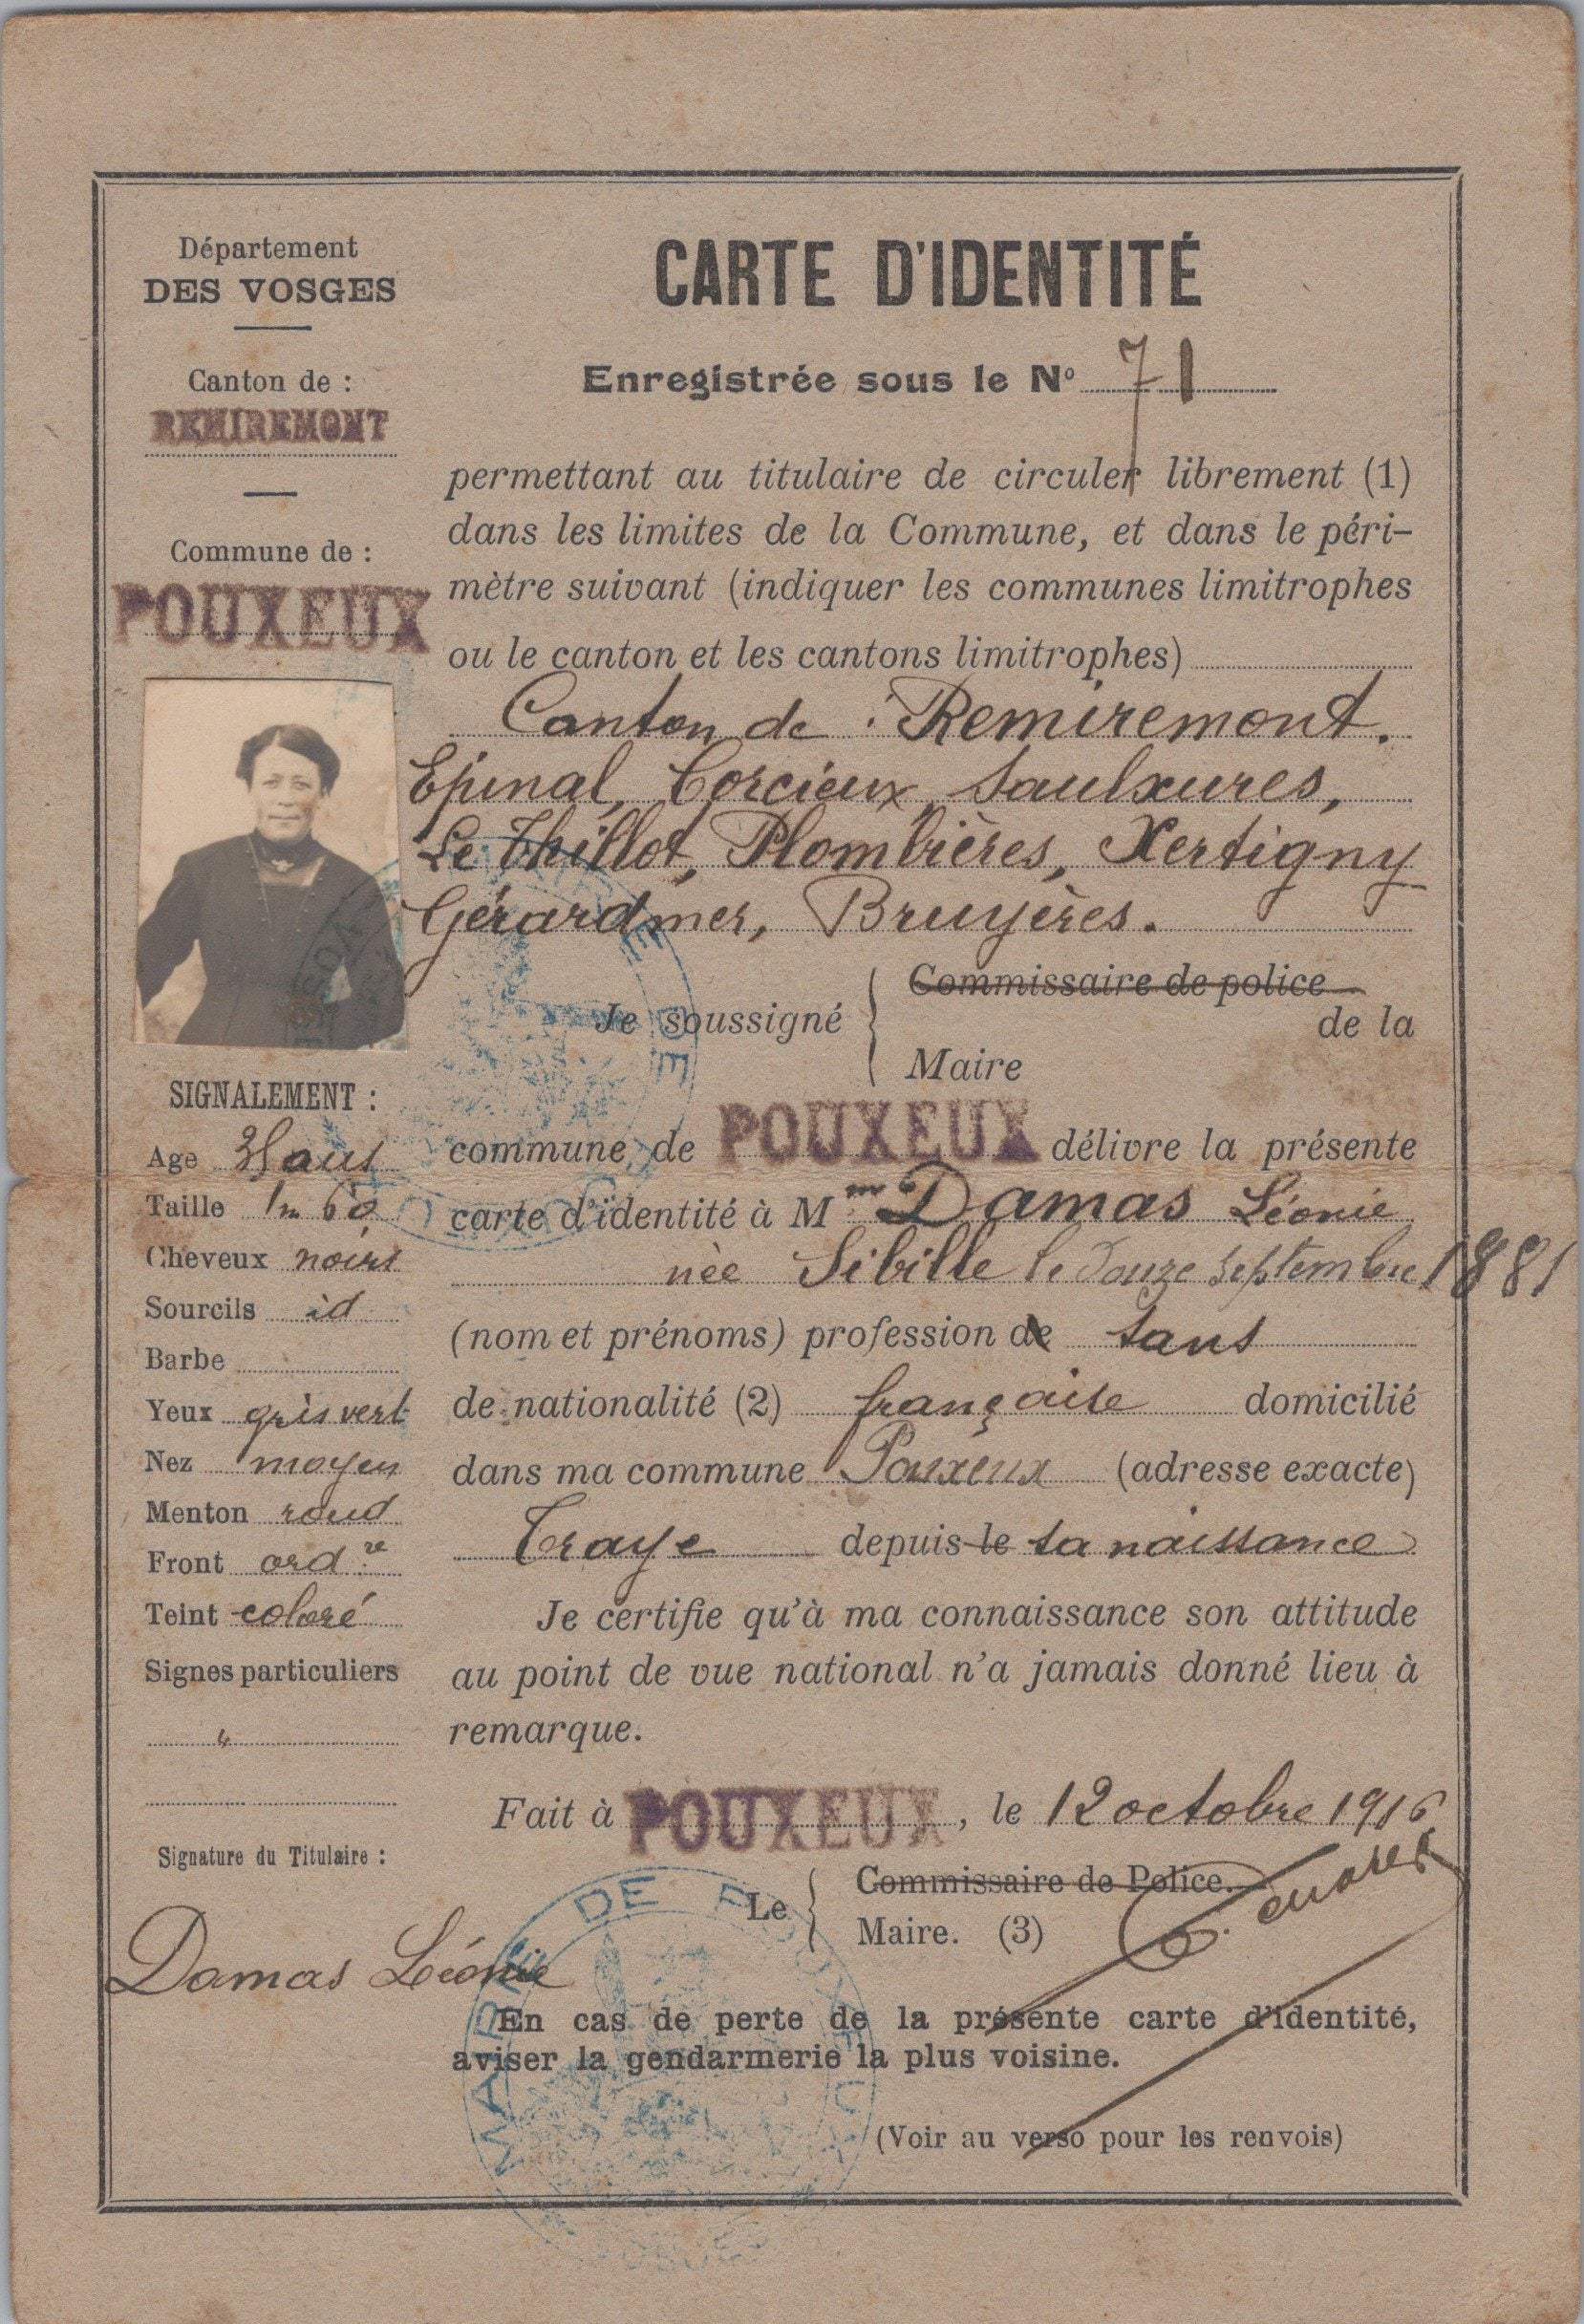 Département
DES VOSGES
Canton de :
REMIREMONT
Commune de :
POUXEUX
CARTE D'IDENTITÉ
Enregistrée sous le Nº 71
permettant au titulaire de circuler librement (1)
dans les limites de la Commune, et dans le péri-
mètre suivant (indiquer les communes limitrophes
ou le canton et les cantons limitrophes)
Canton de Remiremont.
Epinal, Corcieux, Saulxures,
Le Thillot, Plombières, Xertigny
Gérardmer, Bruyères.
Je soussigné
Commissaire de police
de la
Maire
commune de POUXEUX délivre la présente
carte d'identité à Mme Damas Léonie
née Sibille le douze septembre 1881
(nom et prénoms) profession de sans
de nationalité (2) française domicilié
dans ma commune Pouxeux (adresse exacte)
Traye depuis le sa naissance
Je certifie qu'à ma connaissance son attitude
au point de vue national n'a jamais donné lieu à
remarque.
Fait à POUXEUX, le 12 octobre 1916
Le
Commissaire de Police.
Maire. (3)
En cas de perte de la présente carte d'identité,
aviser la gendarmerie la plus voisine.
(Voir au verso pour les renvois)
SIGNALEMENT :
Age ans
Taille 1m 60
Cheveux noirs
Sourcils id
Barbe
Yeux gris vert
Nez moyen
Menton rond
Front ordre
Teint coloré
Signes particuliers
"
Signature du Titulaire :
Damas Léonie
MAIRIE DE POUXEUX